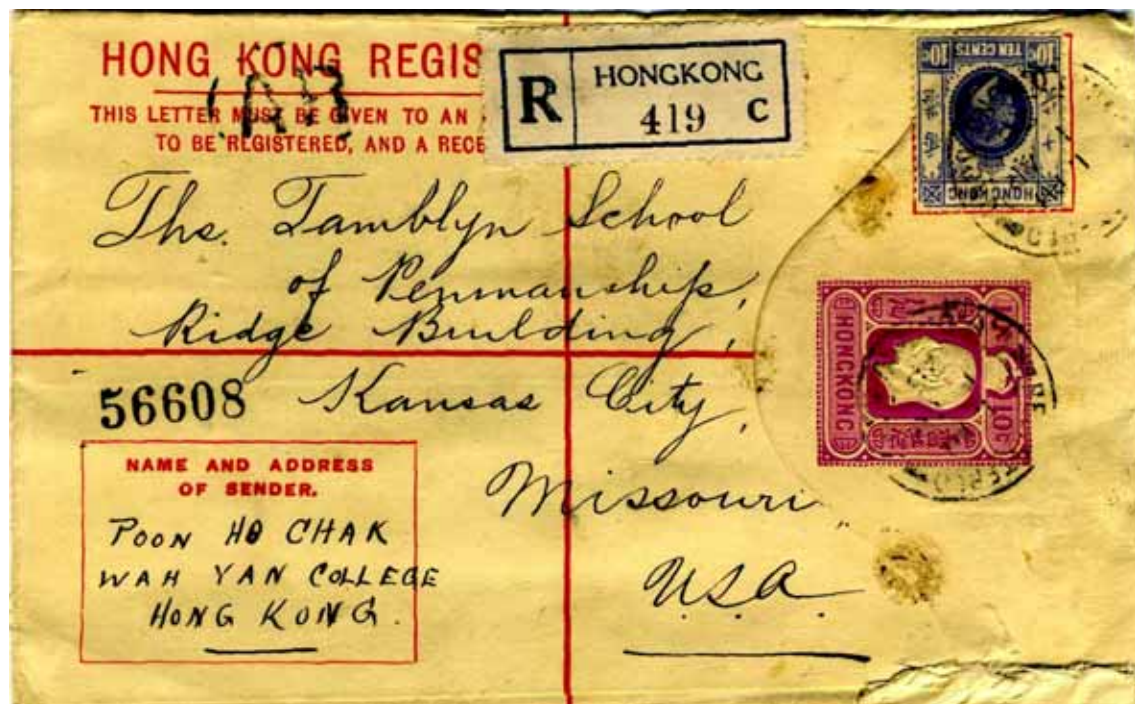 HONG KONG REGIS
THIS LETTER MUST BE GIVEN TO AN
TO BE REGISTERED, AND A RECE
R
HONGKONG
419 C
10C TEN CENTS 10C
HONGKONG
The. Tamblyn School
of Penmanship,
Ridge Building,
Kansas City,
Missouri
U.S.A.
HONGKONG
10C
56608
NAME AND ADDRESS
OF SENDER.
POON HO CHAK
WAH YAN COLLEGE
HONG KONG.